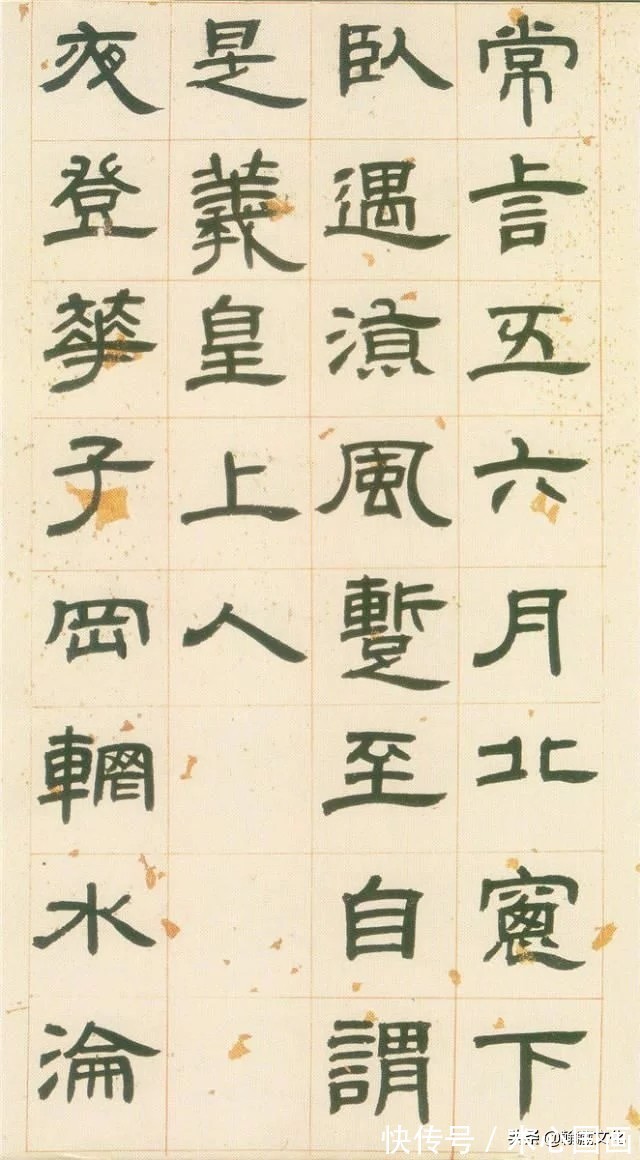 常言五六月北窻下
臥遇涼風暫至自謂
是羲皇上人
夜登華子岡輞水淪
快传号 / 木心国画